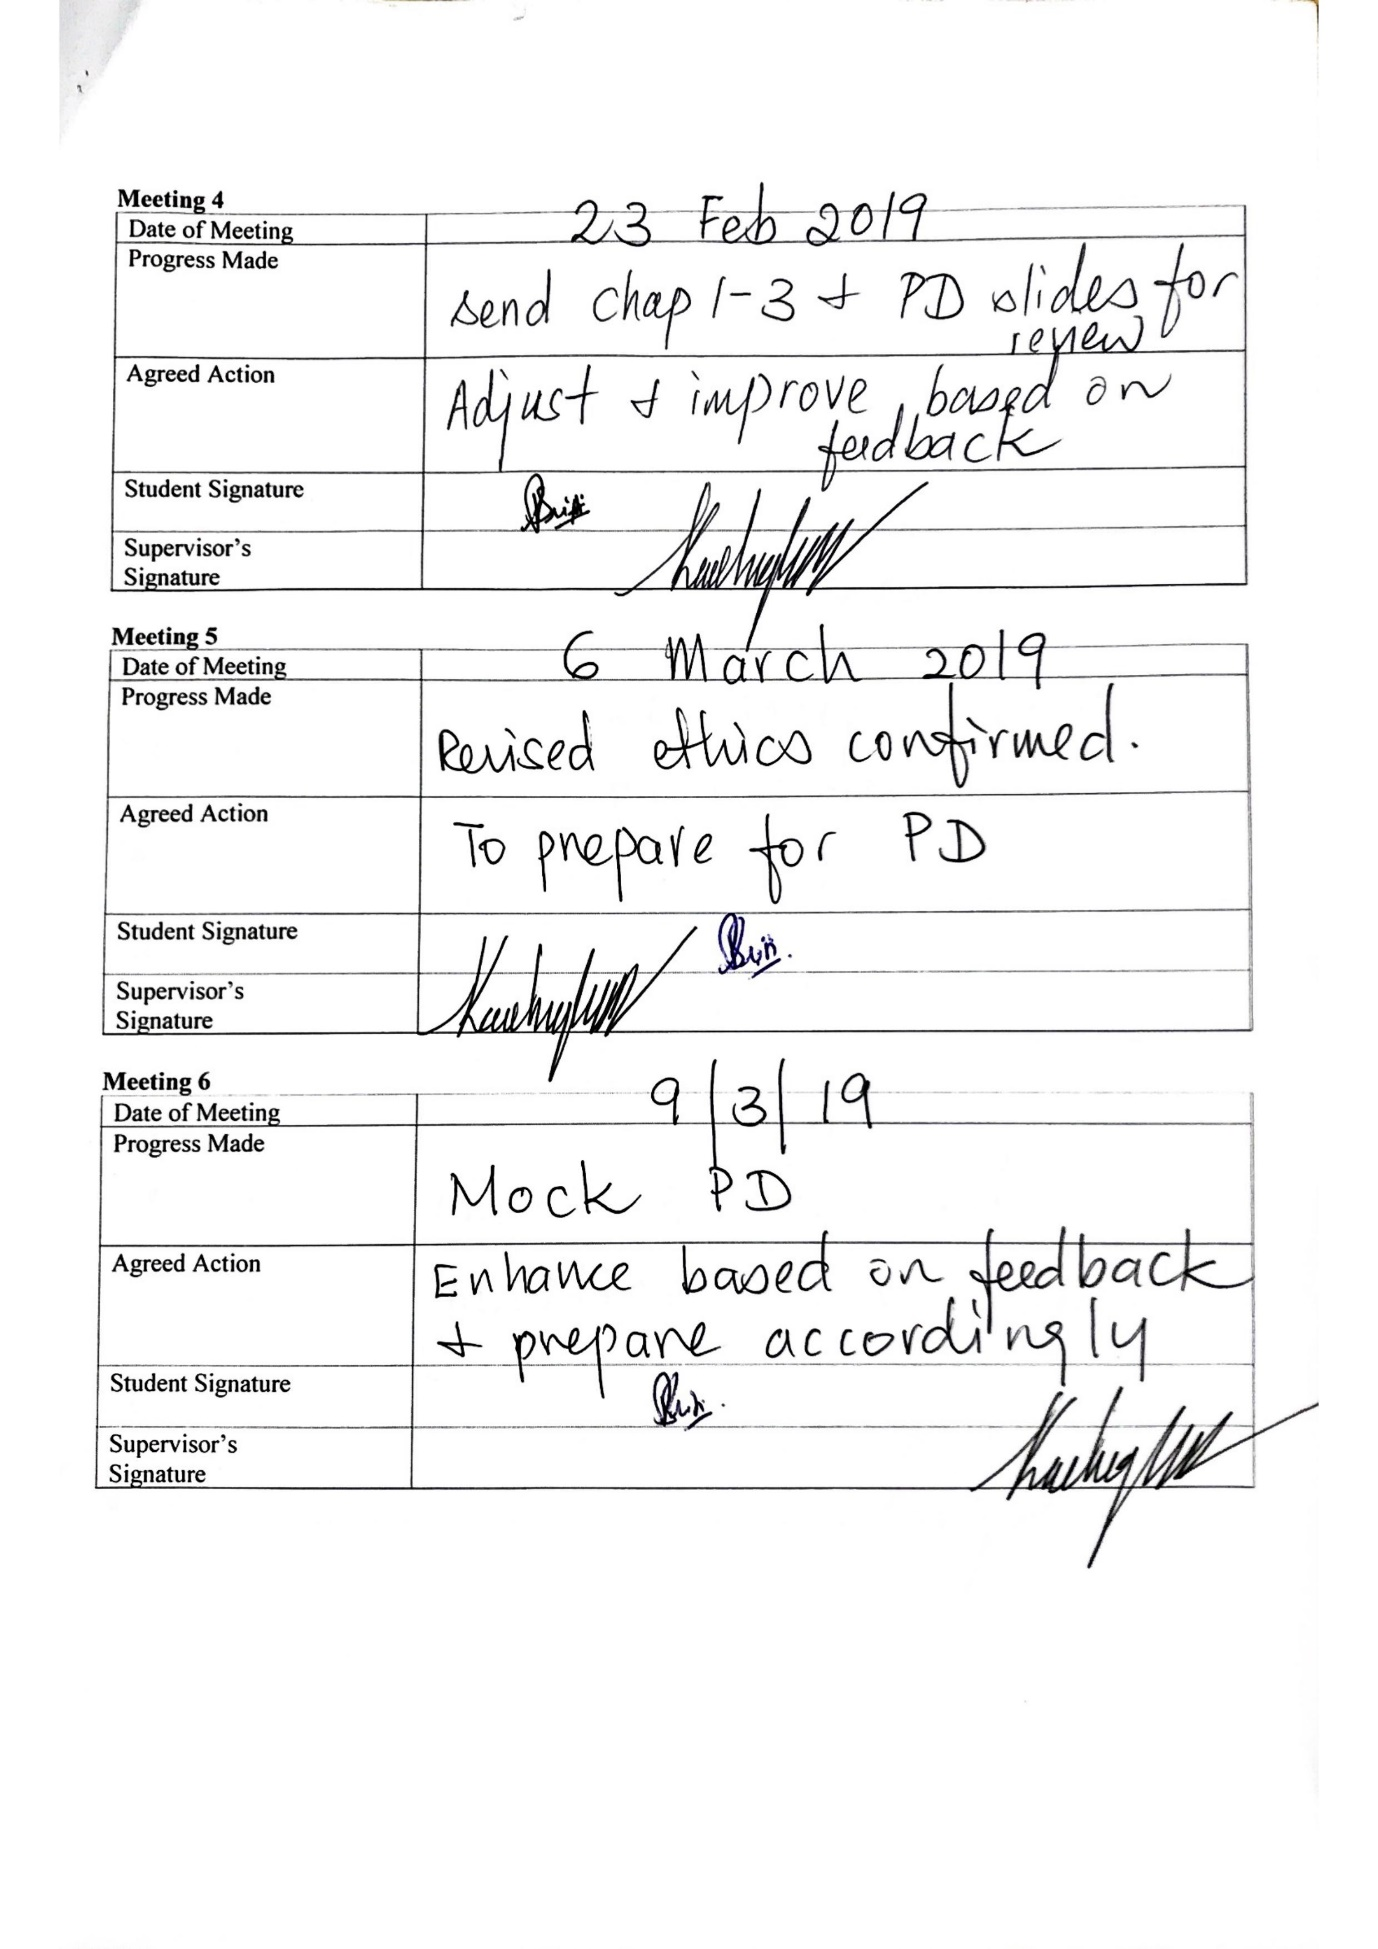 Meeting 4
Date of Meeting 23 Feb 2019
Progress Made
send chap 1-3 + PD slides for
review
Agreed Action
Adjust + improve based on
feedback
Student Signature
Supervisor's
Signature
Meeting 5
Date of Meeting 6 March 2019
Progress Made
Revised ethics confirmed.
Agreed Action
To prepare for PD
Student Signature
Supervisor's
Signature
Meeting 6
Date of Meeting 9/3/19
Progress Made
Mock PD
Agreed Action
Enhance based on feedback
+ prepare accordingly
Student Signature
Supervisor's
Signature